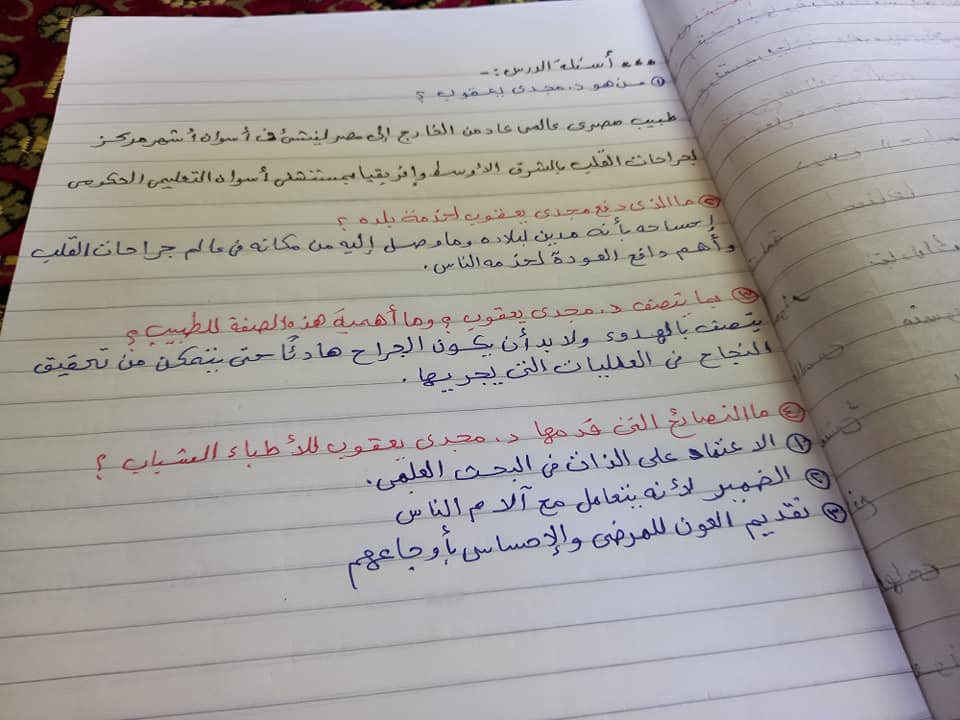 أسئلة الدرس :-
١ من هو د. مجدى يعقوب ؟
طبيب مصرى عالمى عاد من الخارج إلى مصر لينشئ فى أسوان أشهر مركز
لجراحات القلب بالشرق الأوسط وإفريقيا بمستشفى أسوان التعليمى الحكومى
٢ ما الذى دفع مجدى يعقوب لخدمة بلده ؟
إحساسه بأنه مدين لبلاده وما وصل إليه من مكانه فى عالم جراحات القلب
وأهم دافع العودة لخدمه الناس .
٣ بما يتصف د. مجدى يعقوب ؟ وما أهمية هذه الصفة للطبيب ؟
يتصف بالهدوء ولا بد أن يكون الجراح هادئًا حتى يتمكن من تحقيق
النجاح فى العمليات التى يجريها .
٤ ما النصائح التى قدمها د. مجدى يعقوب للأطباء الشباب ؟
١ الاعتماد على الذات فى البحث العلمى .
٢ الضمير لأنه يتعامل مع آلام الناس
٣ تقديم العون للمرضى والإحساس بأوجاعهم